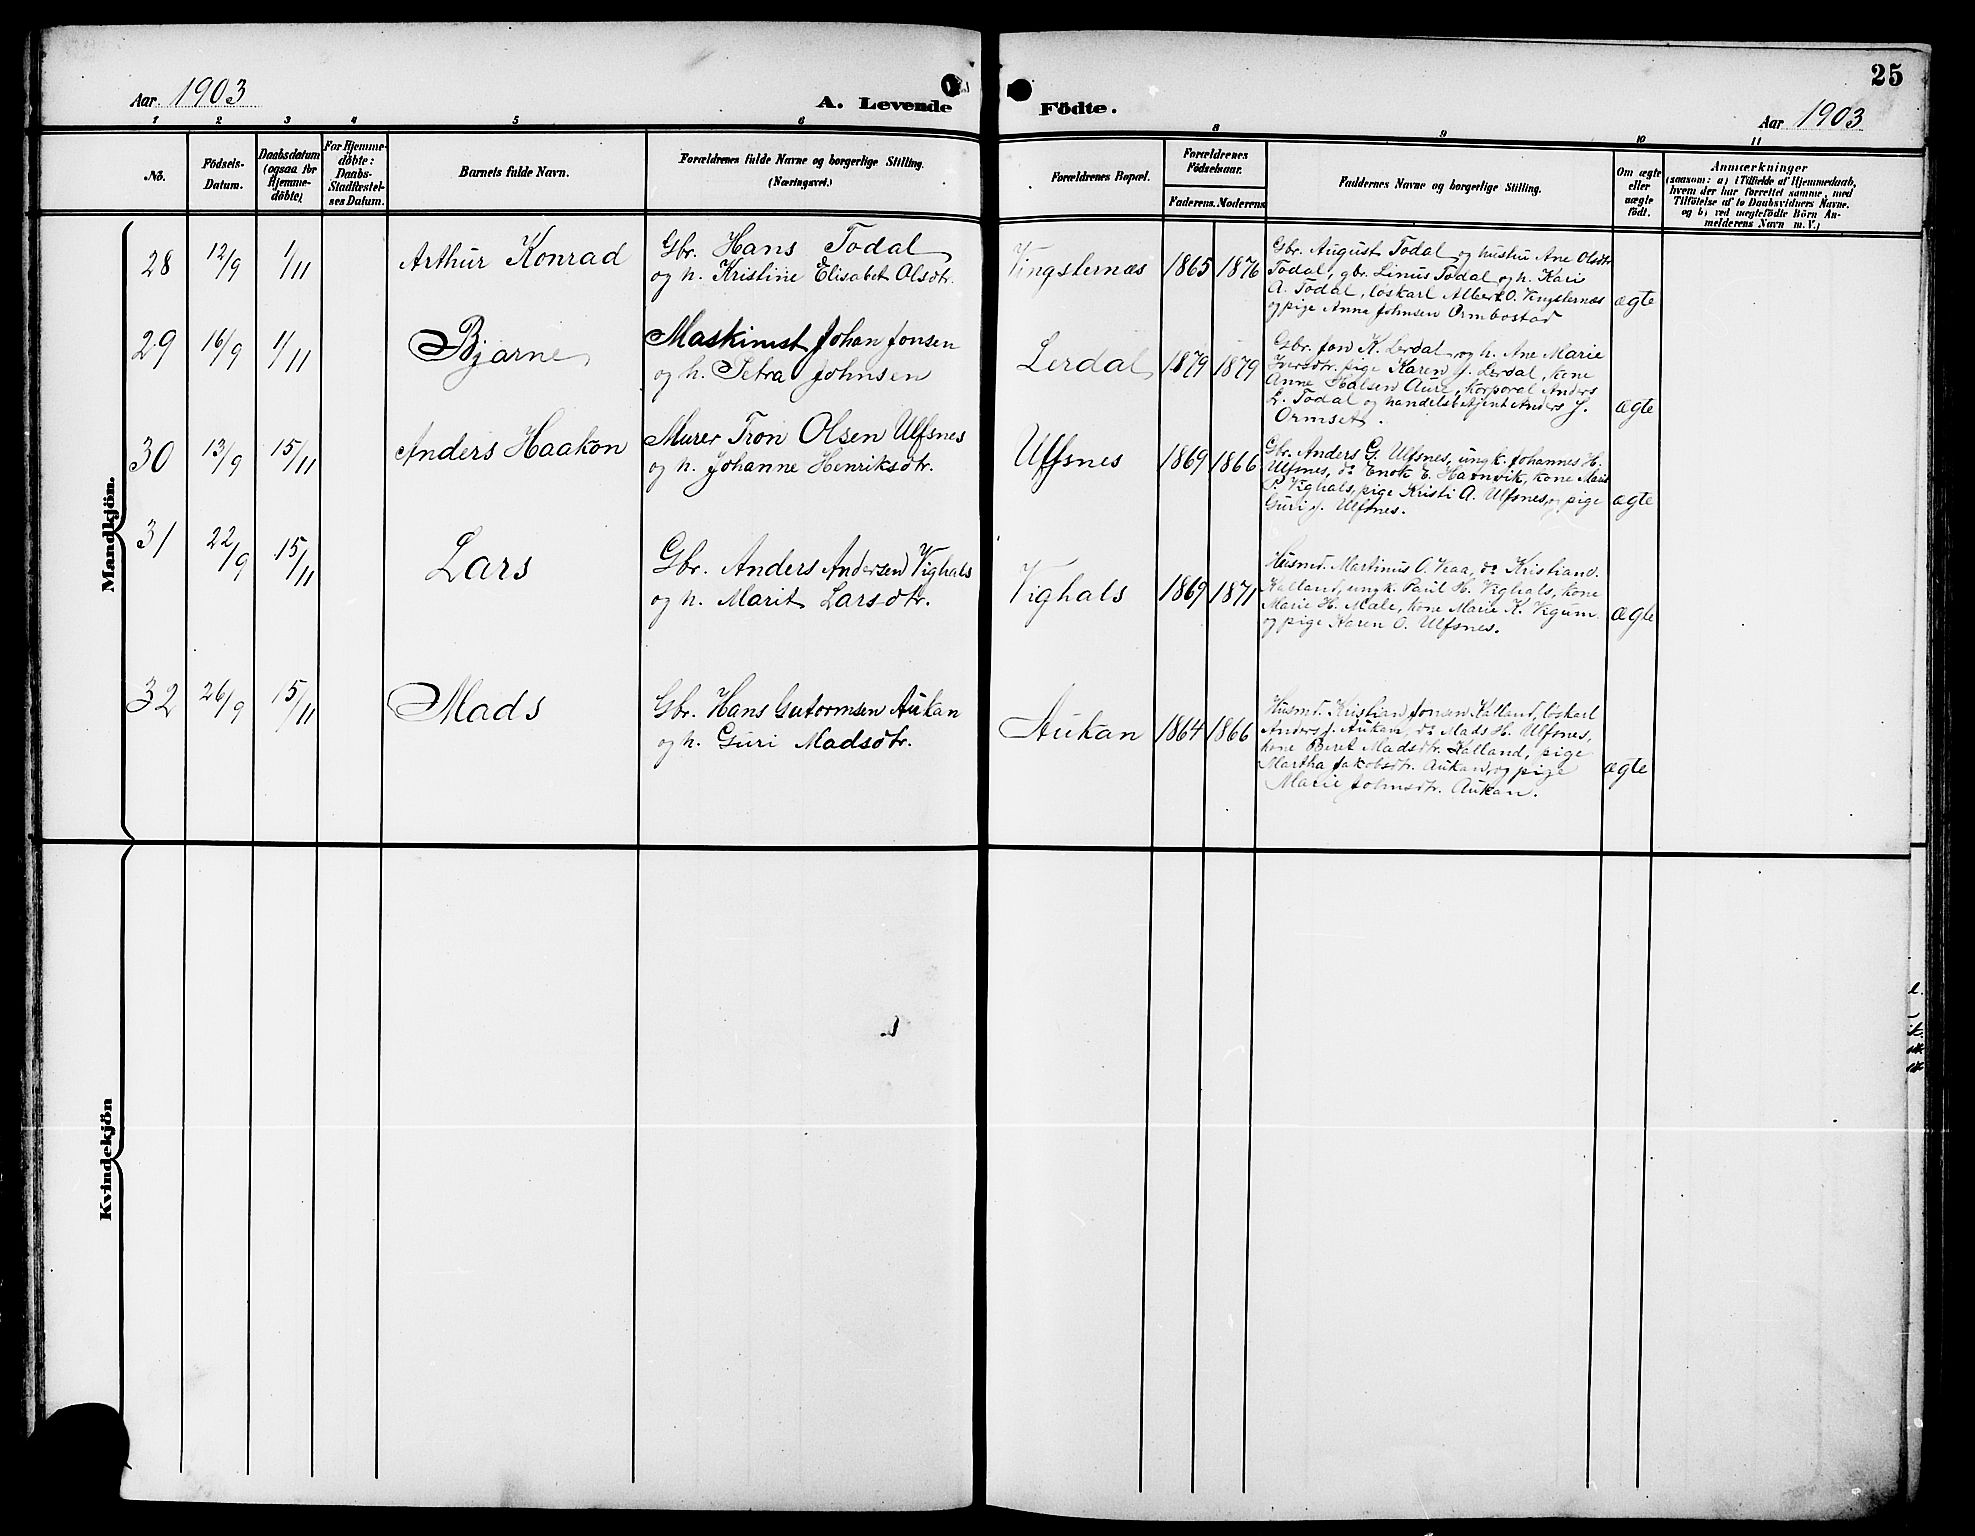 Aar 1903
A. Levende
Födte.
Aar 1903
25
1 2 3 4 5 6 8 9 10 11
No.
Födsels-
Datum.
Daabsdatum
(ogsaa for
Hjemme-
döbte)
For Hjemme-
döbte:
Daabs-
Stadfæstel-
ses Datum.
Barnets fulde Navn.
Forældrenes fulde Navne og borgerlige Stilling.
(Næringsvei.)
Forældrenes Bopæl.
Forældrenes
Födselsaar.
Faderens. Moderens
Faddernes Navne og borgerlige Stilling.
Om ægte
eller
uægte
födt.
Anmærkninger
(saasom: a) i Tilfælde af Hjemmedaab,
hvem der har forrettet samme, med
Tilföielse af to Daabsvidners Navne,
og b) ved uægtefödte Börn An-
melderens Navn m. V.)
Mandkjön.
28 12/9 1/11 Arthur Konrad
Gbr. Hans Todal
og h. Kristine Elisabet Olsdtr.
Vingsternæs 1865 1876
Gbr. August Todal og hustru Ane Olsdtr
Todal, gbr. Linus Todal og h. Kari
A. Todal, löskarl Albert O. Vingsternæs
og pige Anne Johnsen Ormbostad
ægte
29 16/9 1/11 Bjarne
Maskinist Johan Jonsen
og h. Petra Johnsen
Lerdal 1879 1879
Gbr. Jon K. Lerdal og h. Ane Marie
Iversdtr. pige Karen J. Lerdal, kone
Anne Halsen Aure, korporal Anders
L. Todal og handelsbetjent Anders J.
Ormset.
ægte
30 13/9 15/11 Anders Haakon
Murer Tron Olsen Ulfsnes
og h. Johanne Henriksdtr.
Ulfsnes 1869 1866
Gbr. Anders G. Ulfsnes, ungk. Johannes H.
Ulfsnes, do Enok E. Havnvik, kone Marit
P. Vighals, pige Kristi A. Ulfsnes, og pige
Guri J. Ulfsnes.
ægte
31 22/9 15/11 Lars
Gbr. Anders Andersen Vighals
og h. Marit Larsdtr.
Vighals 1869 1871
Husmd. Martinus O. do Kristian J.
Kalland, ungk. Paul H. Vighals, kone
Marie H. Mæle, kone Marie K. Vegum
og pige Karen O. Ulfsnes.
ægte
32 26/9 15/11 Mads
Gbr. Hans Guttormsen Aukan
og h. Guri Madsdtr.
Aukan 1864 1866
Husmd. Kristian Jonsen Kalland, löskarl
Anders J. Aukan, do Mads H. Ulfsnes,
kone Beret Madsdtr. Kalland, pige
Martha Jakobsdtr. Aukan, og pige
Marie Johnsdtr. Aukan.
ægte
Kvindekjön